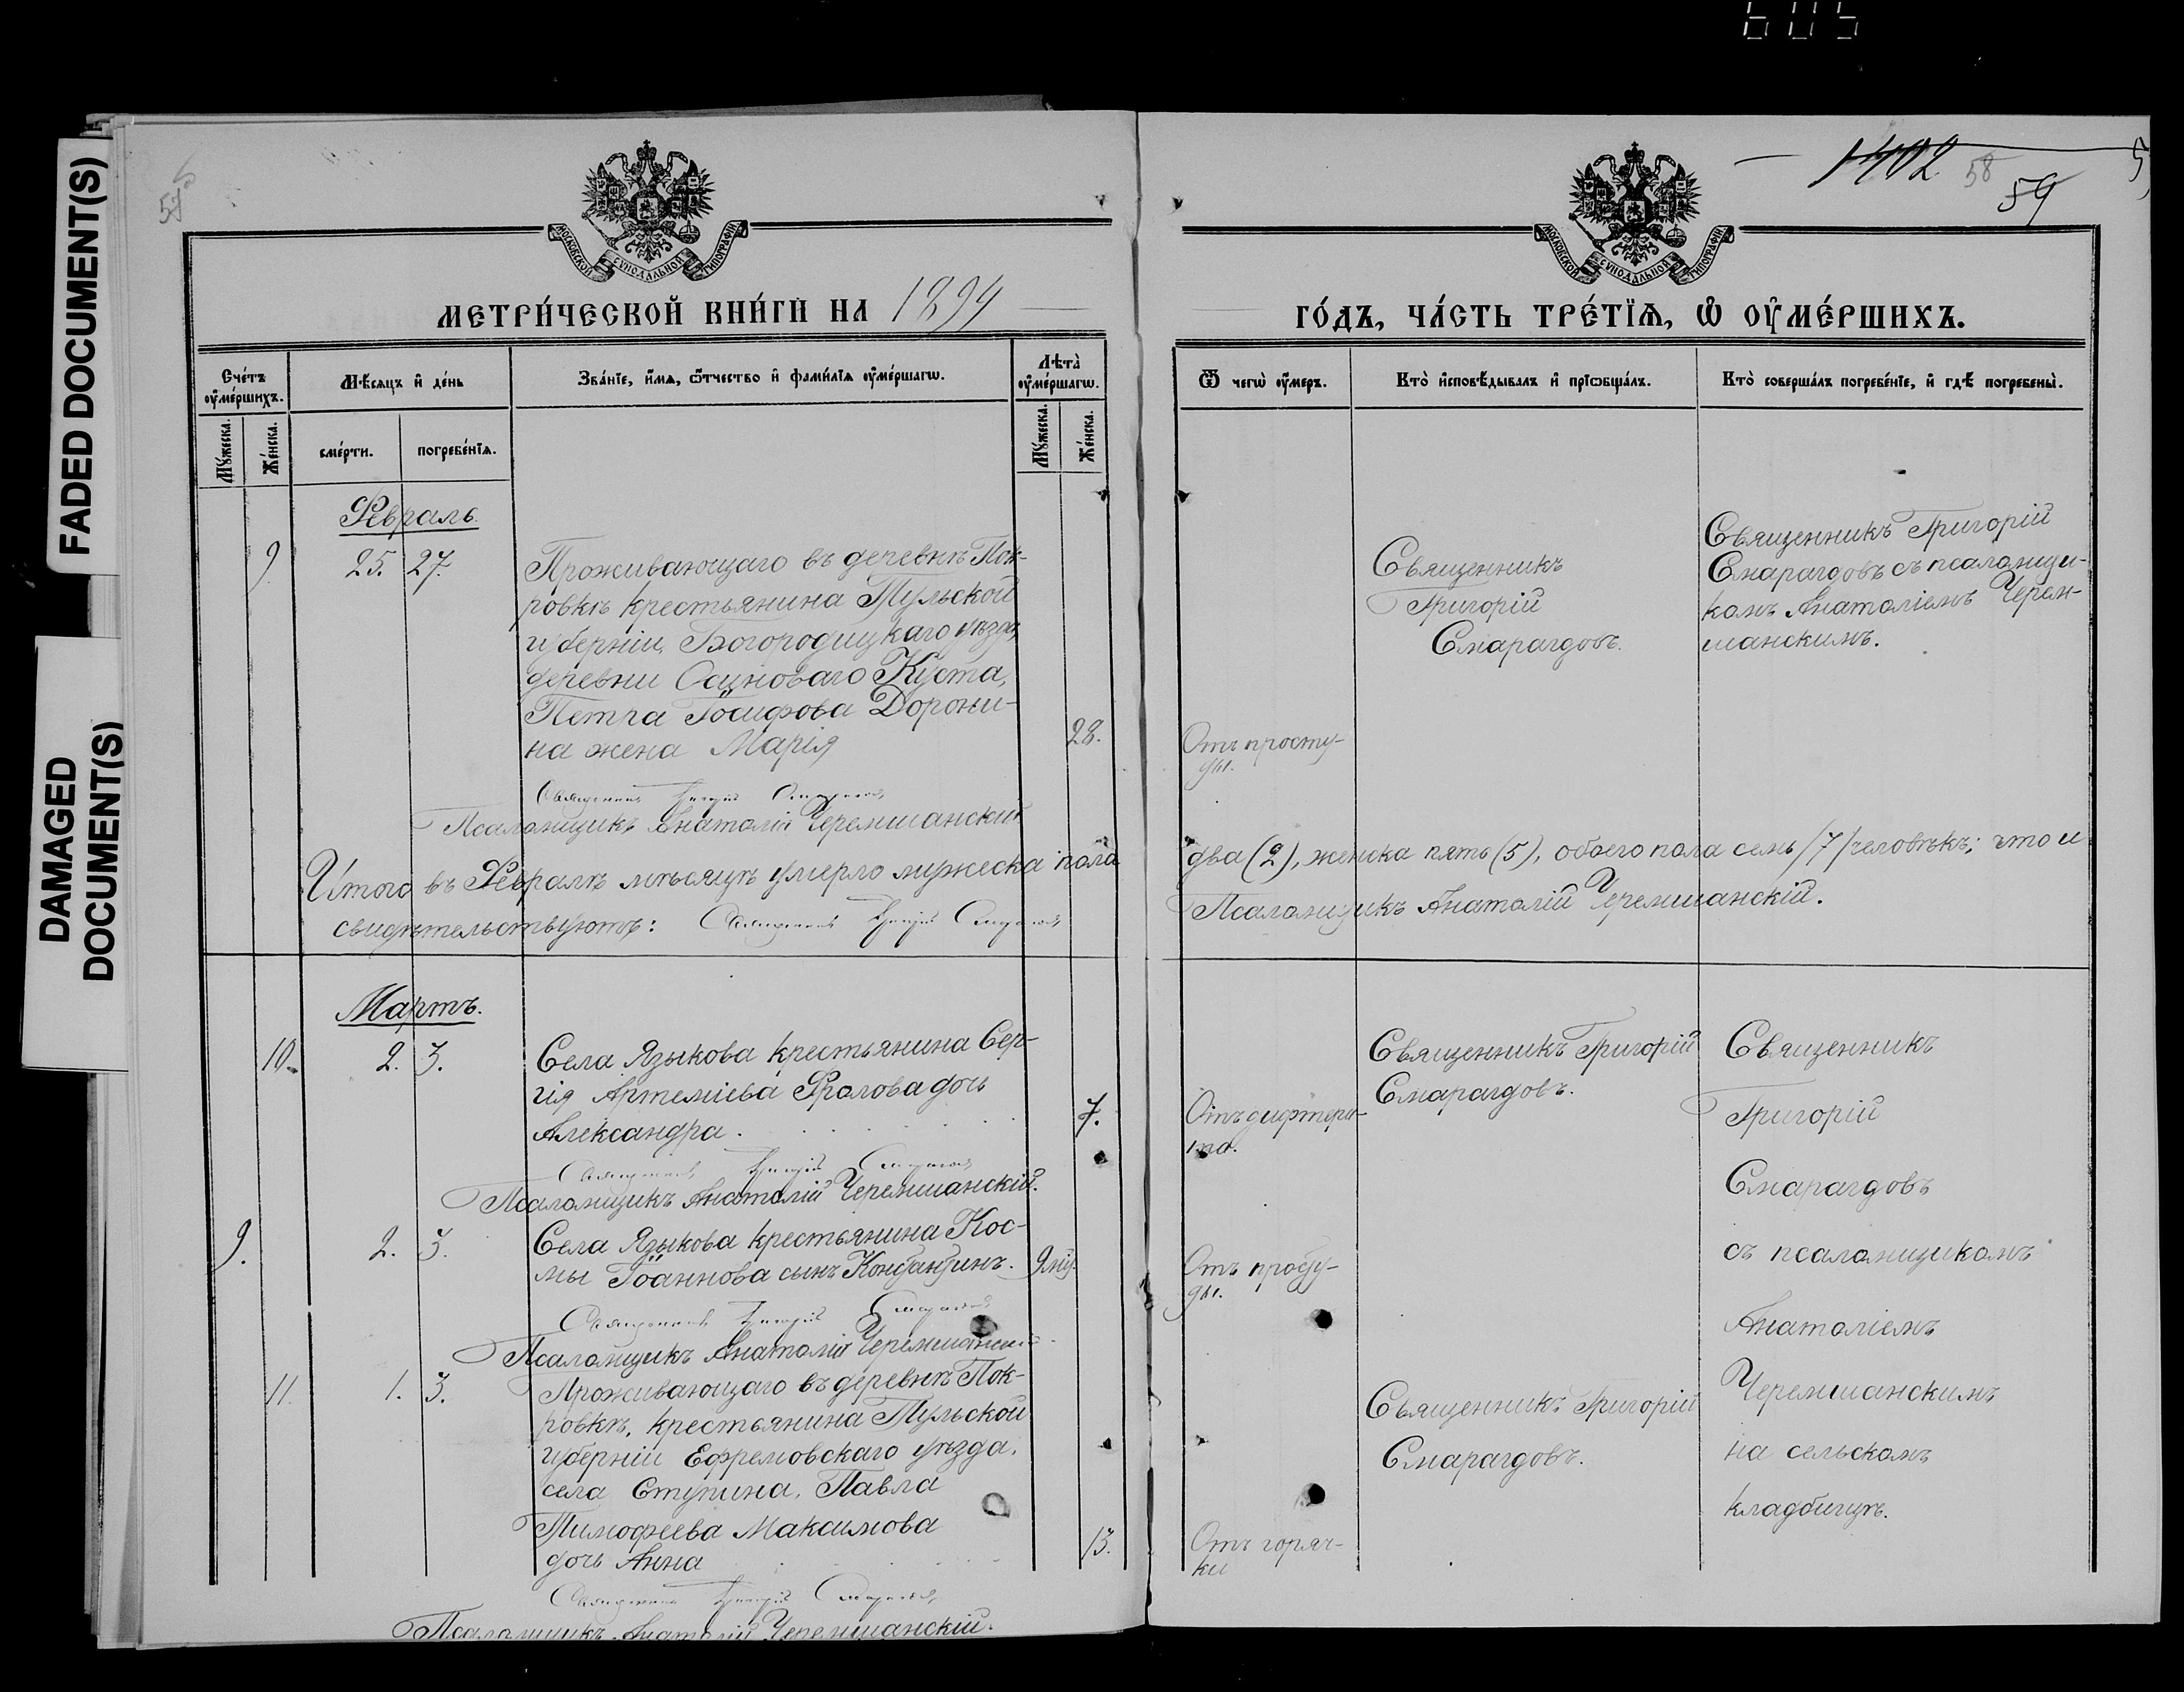 605
FADED DOCUMENT(S)
DAMAGED
DOCUMENT(S)
МОСКОВСКОЙ СѴНОДАЛЬНОЙ ТИПОГРАФІИ
МЕТРИ́ЧЕСКОЙ КНИ́ГИ НА 1894
Сче́тъ ᲂу҆ме́ршихъ.
Мꙋ́жеска.
Же́нска.
Мѣ́сяцъ и҆ де́нь
сме́рти.
погребе́нїѧ.
Зва́нїе, и҆́мѧ, ѻ҆́тчество и҆ фами́лїѧ ᲂу҆ме́ршагѡ.
Лѣта̀ ᲂу҆ме́ршагѡ.
Мꙋ́жеска.
Же́нска.
Февраль.
9. 25. 27. Проживающаго въ деревнѣ Пок-
ровкѣ крестьянина Тульской
губерніи, Богородицкаго уѣзда,
деревни Осиноваго Куста,
Петра Іосифова Дорони-
на жена Марія 28.
Священникъ Григорій Смарагдовъ
Псаломщикъ Анатолій Черемшанскій
Итого въ Февралѣ мѣсяцѣ умерло мужеска пола
свидѣтельствуютъ: Священникъ Григорій Смарагдовъ
Мартъ.
10. 2. 3. Села Языкова крестьянина Сер-
гія Артеміева Фролова дочь
Александра. 7.
Священникъ Григорій Смарагдовъ
Псаломщикъ Анатолій Черемшанскій.
9. 2. 3. Села Языкова крестьянина Кос-
мы Іоаннова сынъ Константинъ. 9 м.
Священникъ Григорій Смарагдовъ
Псаломщикъ Анатолій Черемшанскій
11. 1. 3. Проживающаго въ деревнѣ Пок-
ровкѣ, крестьянина Тульской
губерніи Ефремовскаго уѣзда,
села Ступина, Павла
Тимофеева Максимова
дочь Анна 13.
Священникъ Григорій Смарагдовъ
Псаломщикъ Анатолій Черемшанскій.
1402 58 59
МОСКОВСКОЙ СѴНОДАЛЬНОЙ ТИПОГРАФІИ
ГО́ДЪ, ЧА́СТЬ ТРЕ́ТЇѦ, Ѡ҆ ОУ҆МЕ́РШИХЪ.
Ѿ чегѡ̀ ᲂу҆́меръ.
Кто̀ и҆сповѣ́дывалъ и҆ прїѡбща́лъ.
Кто̀ соверша́лъ погребе́нїе, и҆ гдѣ̀ погребены̀.
Отъ просту-
ды.
Священникъ
Григорій
Смарагдовъ.
Священникъ Григорій
Смарагдовъ съ псаломщи-
комъ Анатоліемъ Черем-
шанскимъ.
два (2), женска пять (5), обоего пола семь /7/ человѣкъ; что и
Псаломщикъ Анатолій Черемшанскій.
Отъ дифтери-
та.
Священникъ Григорій
Смарагдовъ.
Отъ просту-
ды.
Священникъ Григорій
Смарагдовъ.
Отъ горяч-
ки
Священникъ
Григорій
Смарагдовъ
съ псаломщикомъ
Анатоліемъ
Черемшанскимъ
на сельскомъ
кладбищѣ.